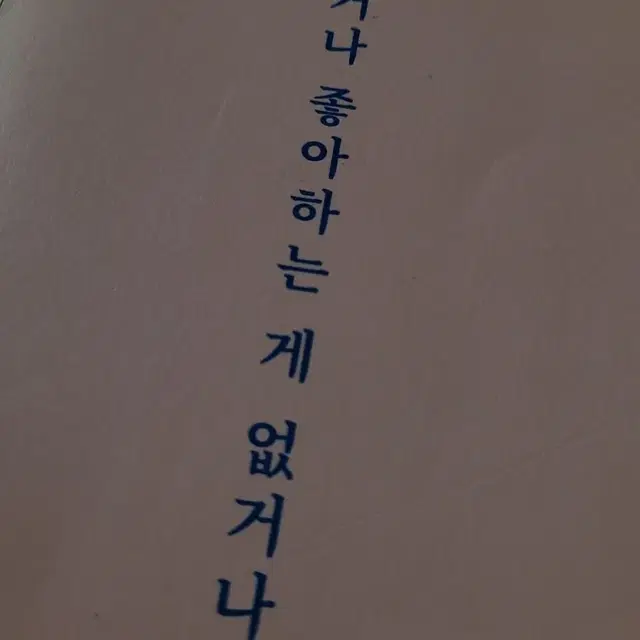 거나 좋아하는 게 없거나